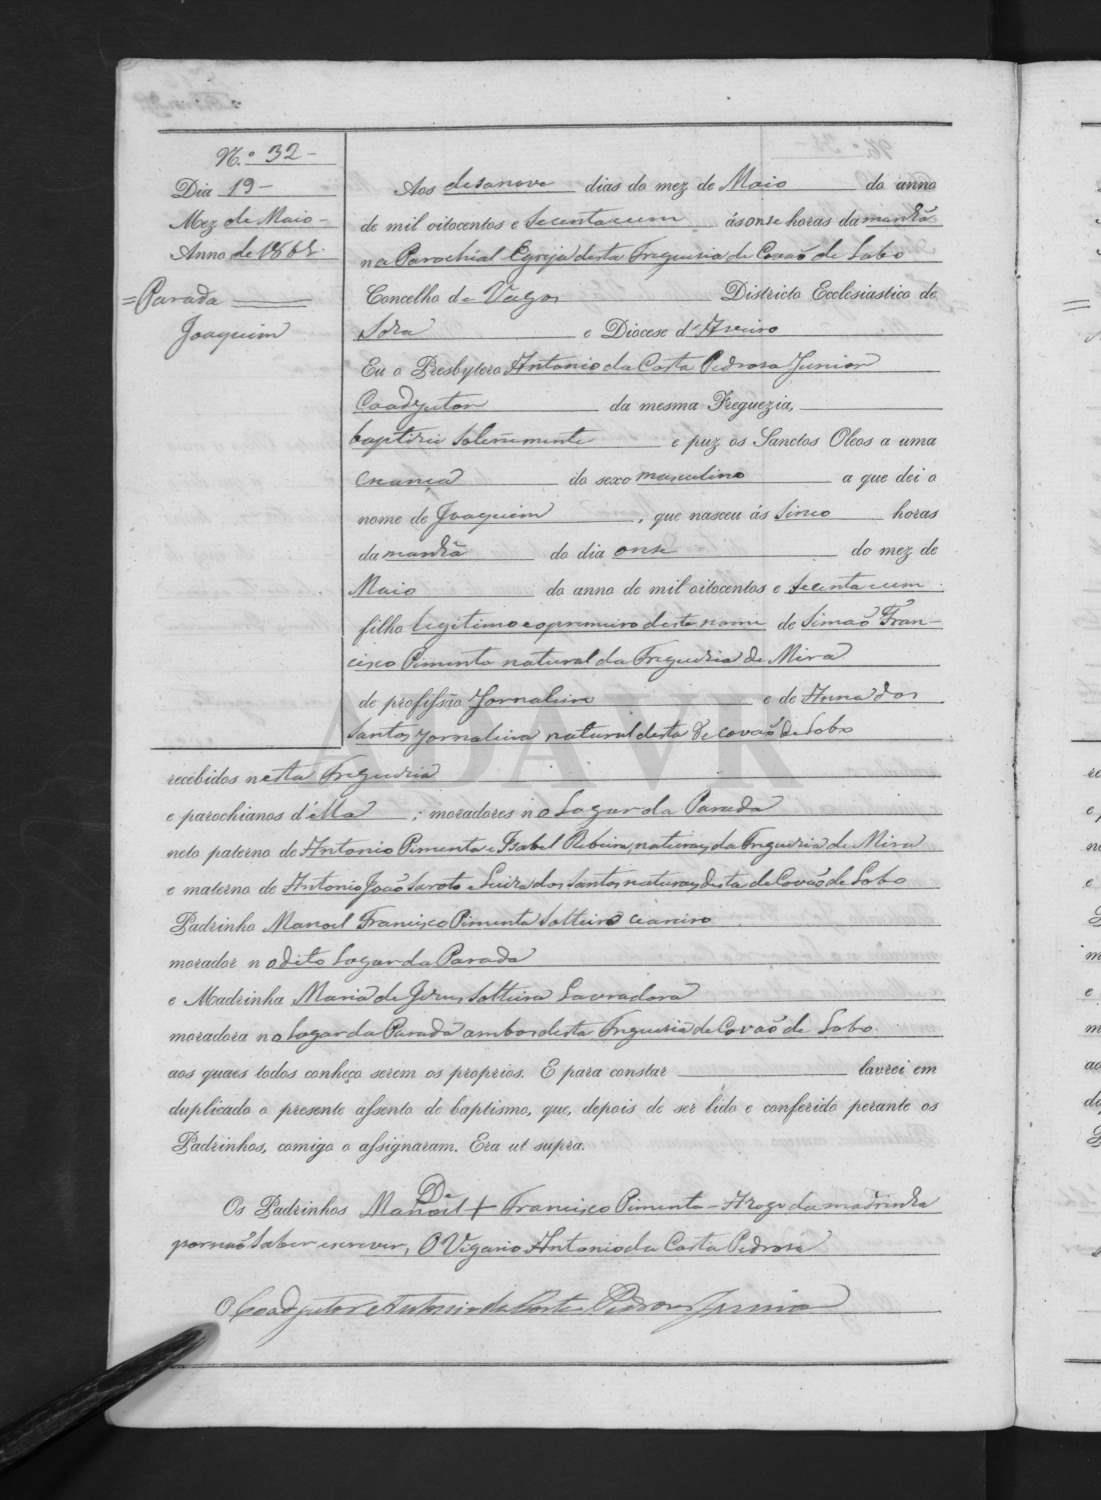 N.º 32 -
Dia 19 -
Mez de Maio -
Anno de 1861.
= Parada
Joaquim
Aos desanove dias do mez de Maio do anno
de mil oitocentos e secenta e um ás onse horas da manhã
na Parochial Egreja desta Freguesia de Covaõ de Lobo
Concelho de Vagos Districto Ecclesiastico de
e Diocese d'Aveiro
Eu o Presbytero Antonio da Costa Pedrosa Junior
Coadjutor da mesma Freguezia,
baptizei solenemente e puz os Sanctos Oleos a uma
creança do sexo masculino a que dei o
nome de Joaquim, que nasceu ás sinco horas
da manhã do dia onse do mez de
Maio do anno de mil oitocentos e secenta e um
filho legitimo e o primeiro deste nome de Simaõ Fran-
cisco Pimenta natural da Freguesia de Mira
de profissão Jornaleiro e de Anna dos
Santos jornaleira natural desta de Covaõ de Lobo
recebidos nesta Freguesia
e parochianos d'ella; moradores no Logar da Parada
neto paterno de Antonio Pimenta e Isabel Ribeira, naturaes da Freguesia de Mira
e materno de Antonio João e Luiza dos Santos naturaes desta de Covaõ de Lobo
Padrinho Manoel Francisco Pimenta Solteiro
morador no dito Logar da Parada
e Madrinha Maria de Jesus Solteira Lavradora
moradora no Logar da Parada ambos desta Freguesia de Covaõ de Lobo.
aos quaes todos conheço serem os proprios. E para constar lavrei em
duplicado o presente assento de baptismo, que, depois de ser lido e conferido perante os
Padrinhos, comigo o assignaram. Era ut supra.
De
Os Padrinhos Manoel + Francisco Pimenta - A rogo da madrinha
por naõ saber escrever, O Vigario Antonio da Costa Pedrosa
O Coadjutor Antonio da Costa Pedrosa Junior
ADAVR